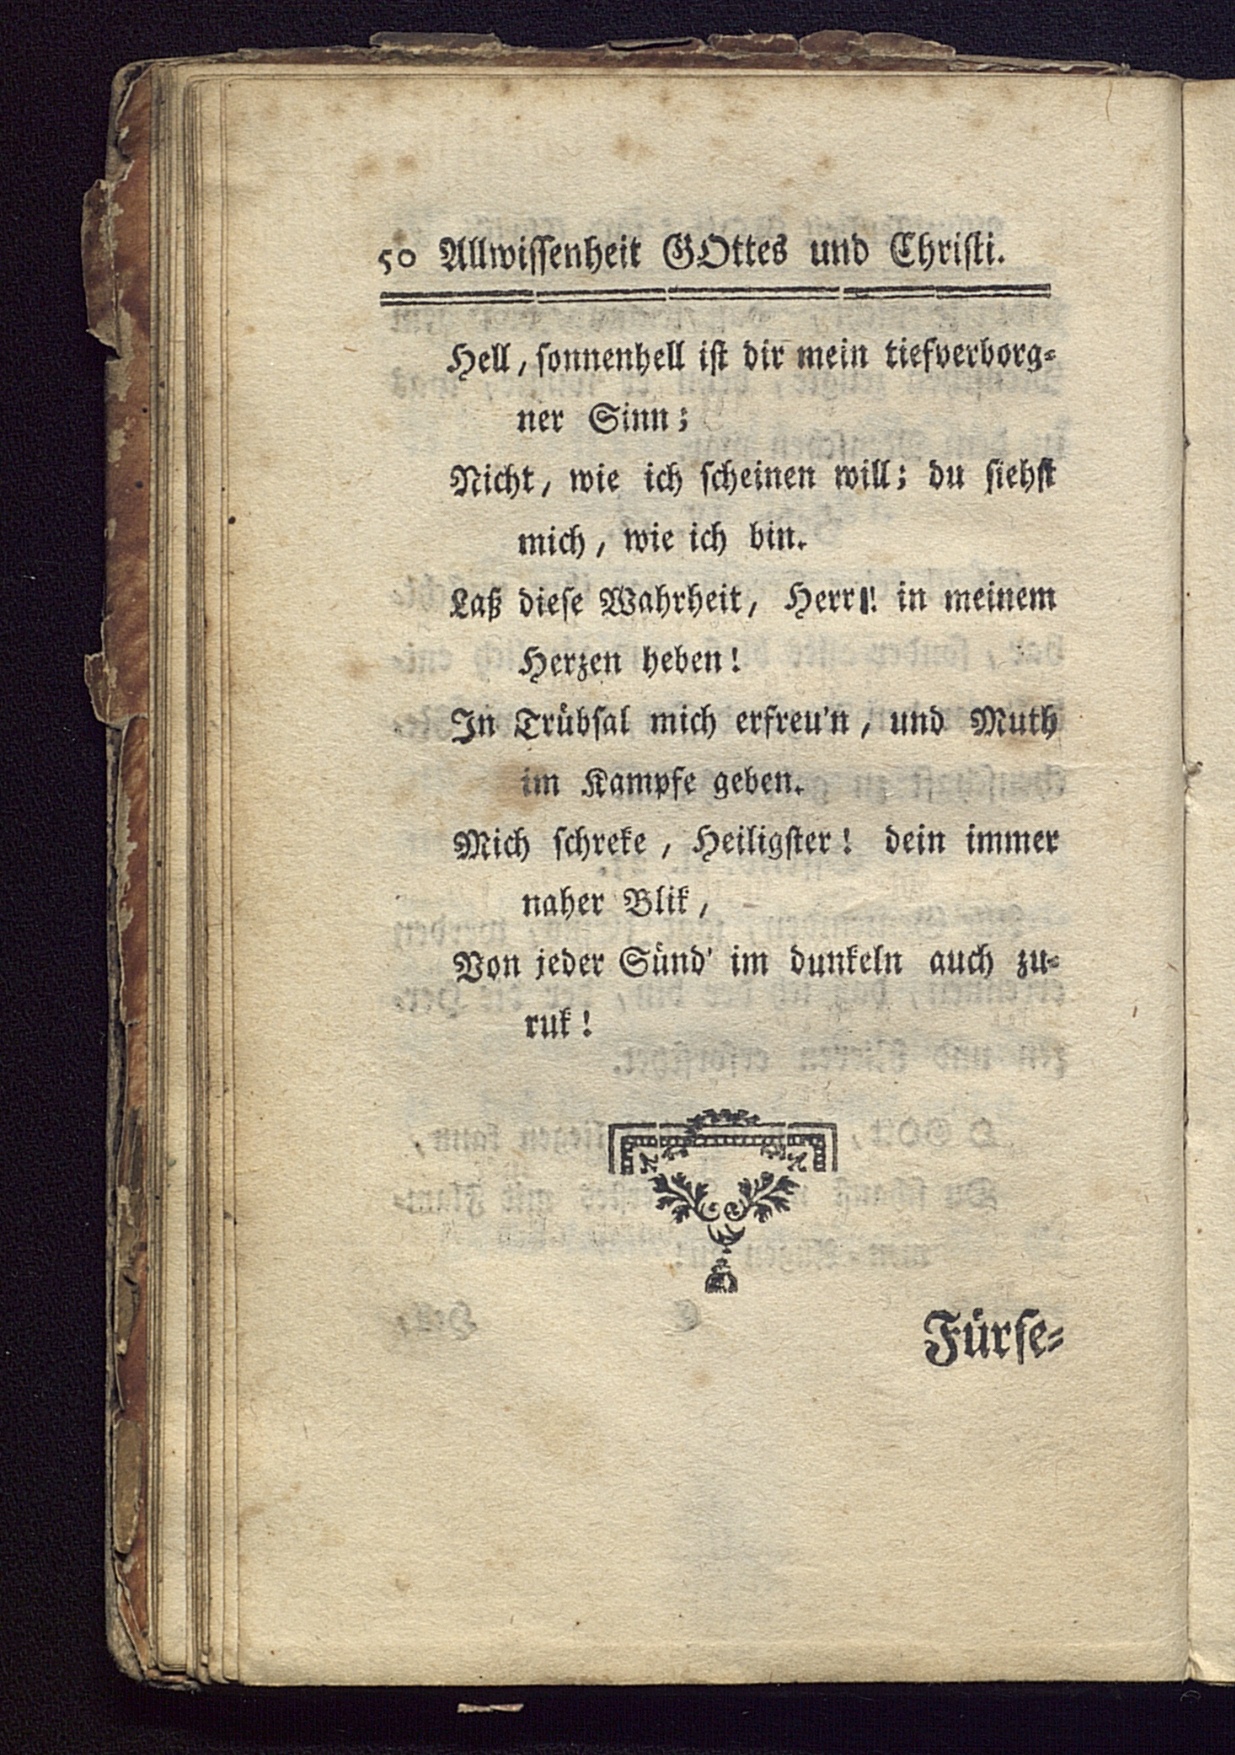 50 Allwissenheit GOttes und Christi.
Hell, sonnenhell ist dir mein tiefverborg-
ner Sinn;
Nicht, wie ich scheinen will; du siehst
mich, wie ich bin.
Laß diese Wahrheit, Herr! in meinem
Herzen heben!
In Trübsal mich erfreu'n, und Muth
im Kampfe geben.
Mich schreke, Heiligster! dein immer
naher Blik,
Von jeder Sünd' im dunkeln auch zu-
ruk!
Fürse-